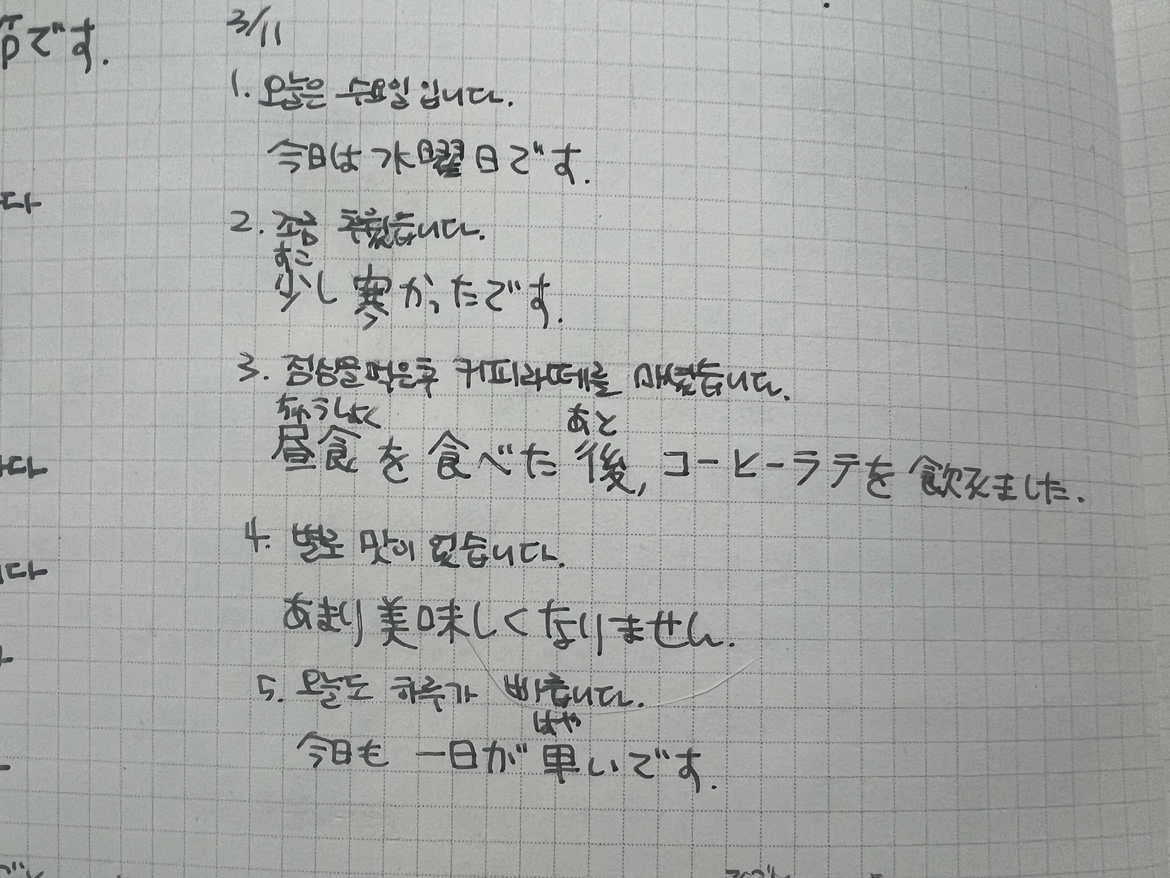 です.
다
다
다
3/11
1. 오늘은 수요일 입니다.
今日は 水曜日です.
2. 조금 추웠습니다.
すこ
少し 寒かったです.
3. 점심을 먹은후 커피라떼를 마셨습니다.
ちゅうしょく あと
昼食を食べた後, コーヒーラテを飲みました.
4. 별로 맛이 없습니다.
あまり美味しくなりません.
5. 오늘도 하루가 빠릅니다.
はや
今日も 一日が早いです.